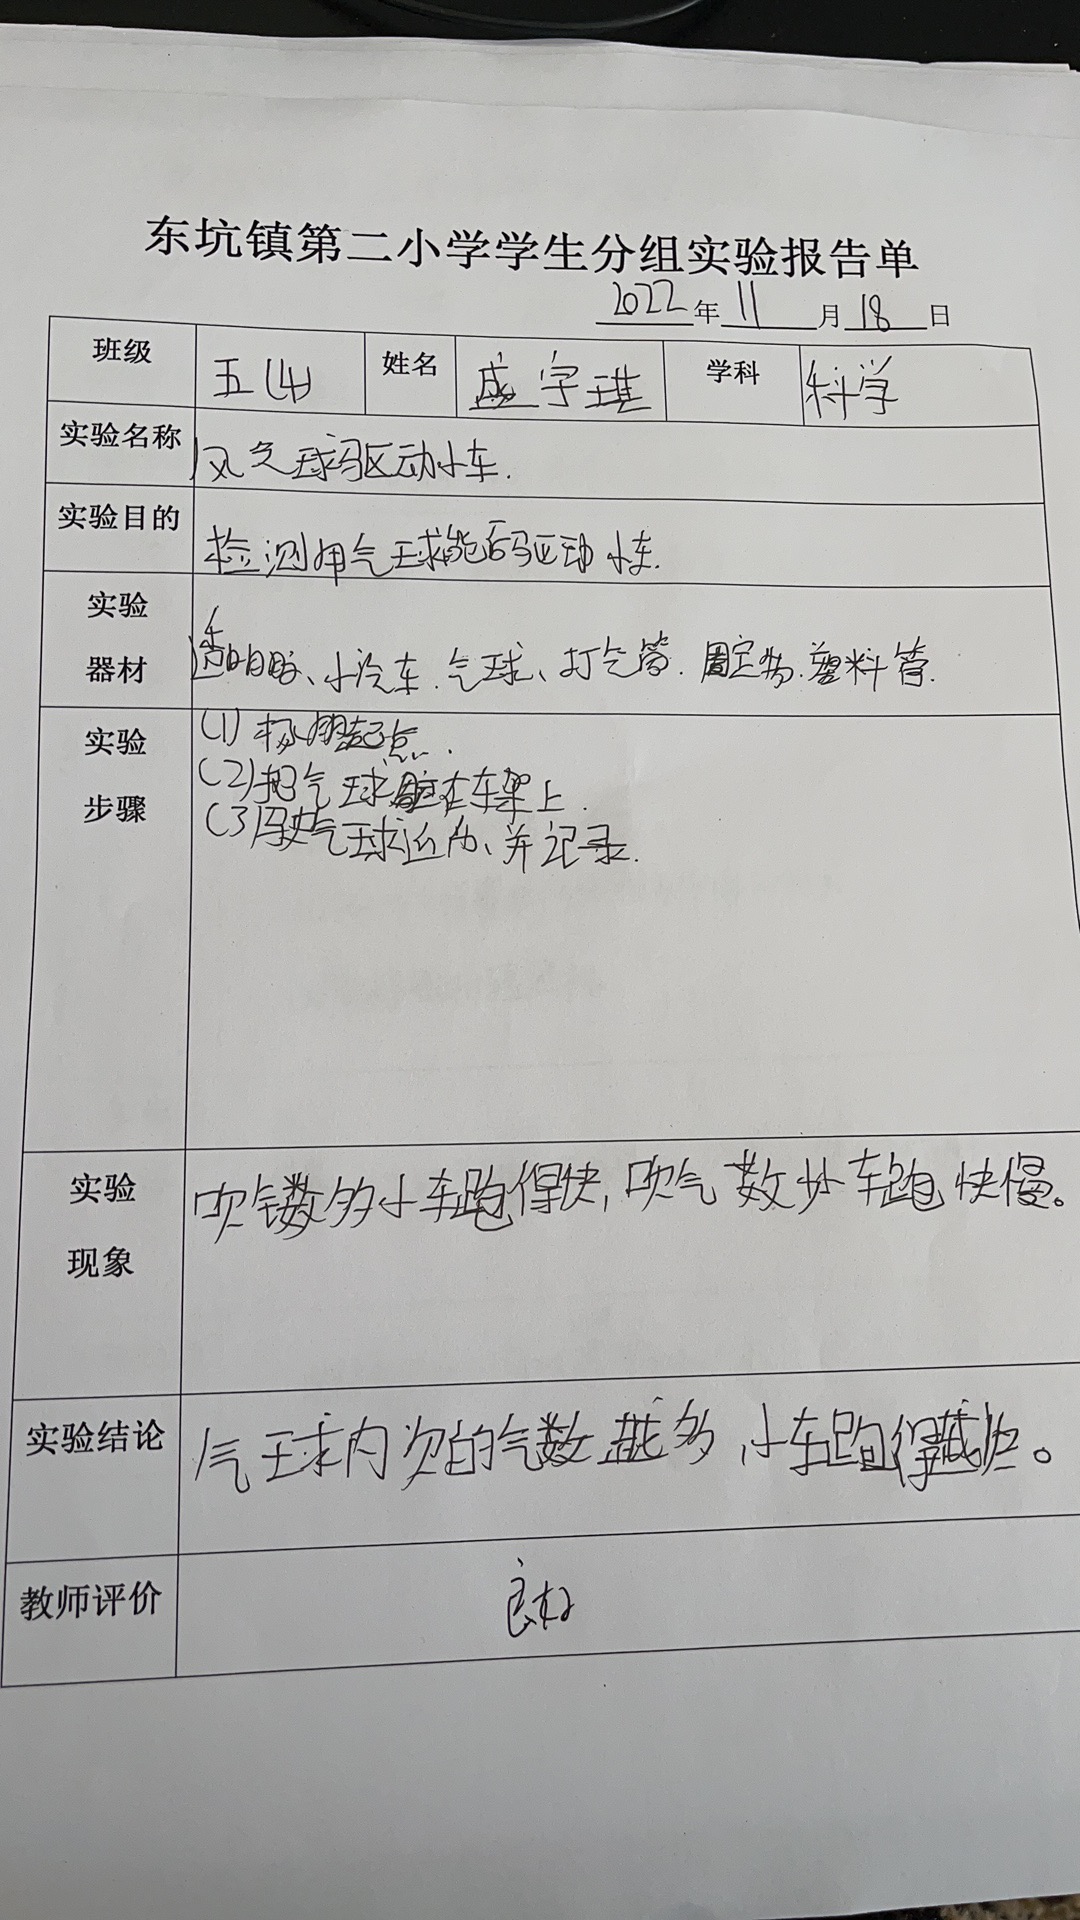 东坑镇第二小学学生分组实验报告单
2022年11月18日
班级 五(4) 姓名 盛宇琪 学科 科学
实验名称 风气球驱动小车.
实验目的 检测用气球能否驱动小车.
实验器材 透明胶、小汽车.气球、打气筒.固定物.塑料管.
实验步骤 (1)起点.
(2)把气球固定在车架上.
(3)气球、并记录.
实验现象 吹气数多小车跑得快,吹气数少车跑快慢。
实验结论 气球内吹的气数越多,小车跑得越快。
教师评价 良好